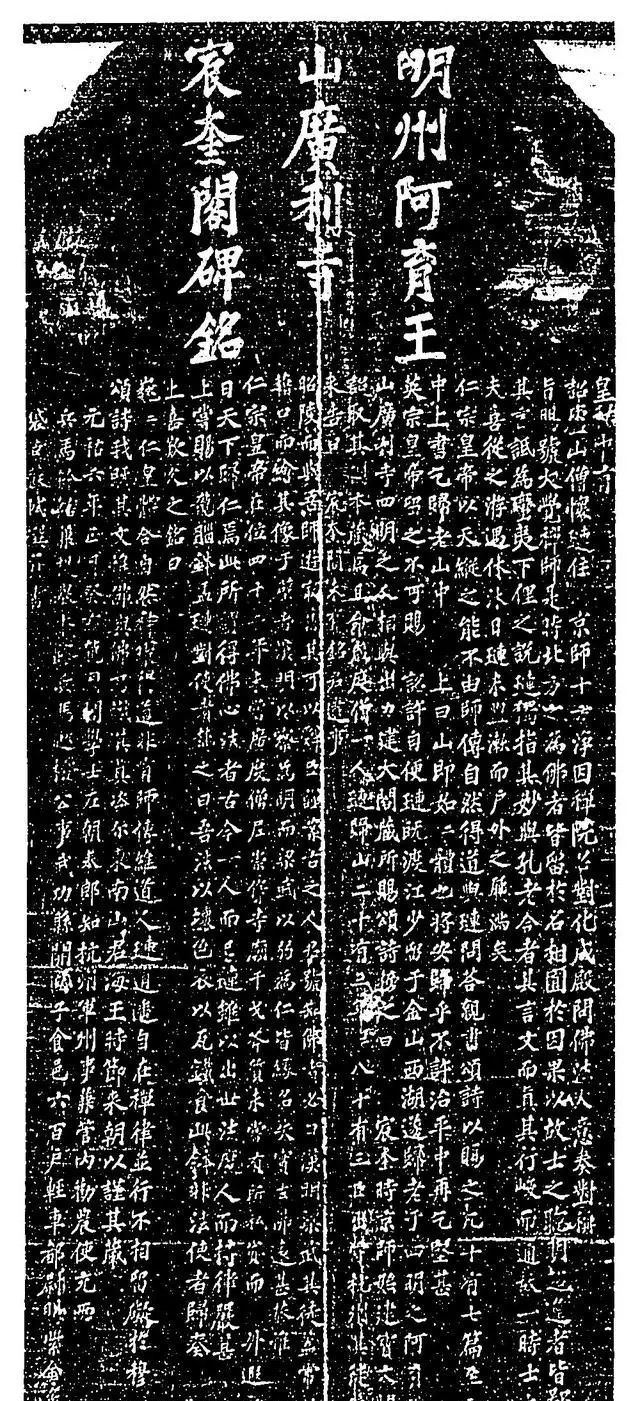 明州阿育王
山廣利寺
宸奎閣碑銘
皇祐中有
詔廬山僧懷璉住 京師十方淨因禪院召對化成殿問佛法大意奏對稱
旨賜號大覺禪師是時北方之為佛者皆留於名相囿於因果以故士之聰明超逸者皆鄙
其言詆為蠻夷下俚之說璉獨指其妙與孔老合者其言文而真其行峻而通故一時士
夫喜從之游遇休沐日璉未盥漱而戶外之屨滿矣
仁宗皇帝以天縱之能不由師傳自然得道與璉問答親書頌詩以賜之凡十有七篇至
中上書乞歸老山中 上曰山即如如體也將安歸乎不許治平中再乞堅甚
英宗皇帝留之不可賜 詔許自便璉既渡江少留于金山西湖遂歸老于四明之阿育
山廣利寺四明之人相與出力建大閣藏所賜頌詩榜之曰 宸奎時京師始建寶文閣
詔取其副本藏焉且命歲度僧一人璉歸山二十有三年年八十有三臣出守杭州其徒
來告曰 宸奎閣未有銘
昭陵而與吾師游最 其可以 臣 古之人君號知佛者必曰漢明梁武其徒蓋常
藉口而繪其像于壁者漢明以察為明而梁武以弱為仁皆緣名失實去佛遠甚恭惟
仁宗皇帝在位四十二年未嘗廣度僧尼崇侈寺廟干戈斧質未嘗有所私貸而 升遐
日天下歸仁焉此所謂得佛心法者古今一人而已璉雖以出世法度人而持律嚴甚
上嘗賜以龍腦鉢盂璉對使者焚之曰吾法以壞色衣以瓦鐵食此鉢非法使者歸奏
上嘉歎久之銘曰
巍巍仁皇體合自然神曜得道非有師傳維道人璉逍遙自在禪律並行不相留礙於穆
頌詩我既其文惟佛與佛乃識其真咨爾東南山君海王時節來朝以謹其藏
元祐六年正月 龍圖閣學士左朝奉郎知杭州軍州事兼管內勸農使充兩
兵馬鈐轄 兵馬 公事武功縣開國子食邑六百戶輕車都尉賜紫金